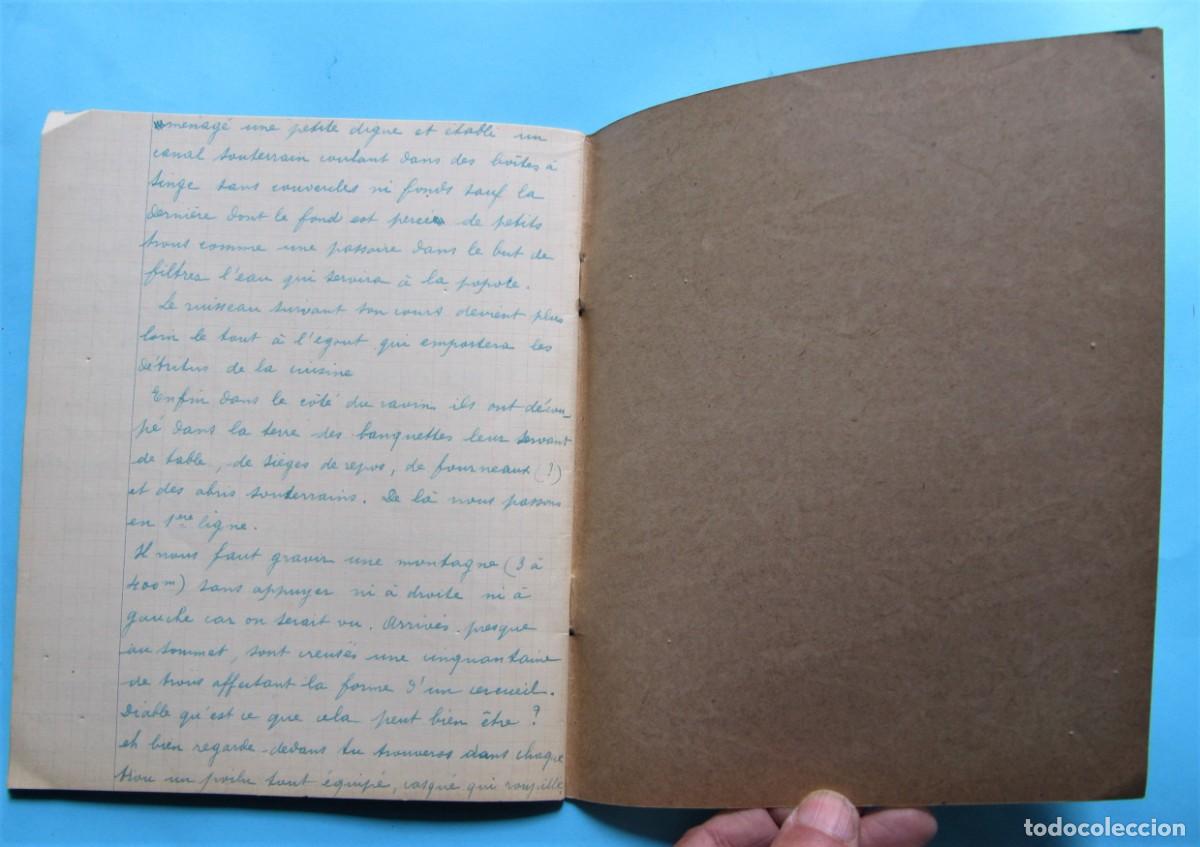 menagé une petite digue et établi un
canal souterrain coulant dans des boîtes à
singe sans couvercles ni fonds sauf la
dernière dont le fond est percé de petits
trous comme une passoire dans le but de
filtrer l'eau qui servira à la popote.
Le ruisseau suivant son cours devient plus
loin le tout à l'égout qui emportera les
détritus de la cuisine
Enfin dans le côté du ravin ils ont décou-
pé dans la terre des banquettes leur servant
de table, de sièges de repos, de fourneaux (?)
et des abris souterrains. De là nous passons
en 1ère ligne.
Il nous faut gravir une montagne (3 à
400m) sans appuyer ni à droite ni à
gauche car on serait vu. Arrivés presque
au sommet, sont creusés une cinquantaine
de trous affectant la forme d'un cercueil.
Diable qu'est ce que cela peut bien être ?
eh bien regarde-dedans tu trouveras dans chaque
trou un poilu tout équipé, casqué qui roupille
todocoleccion